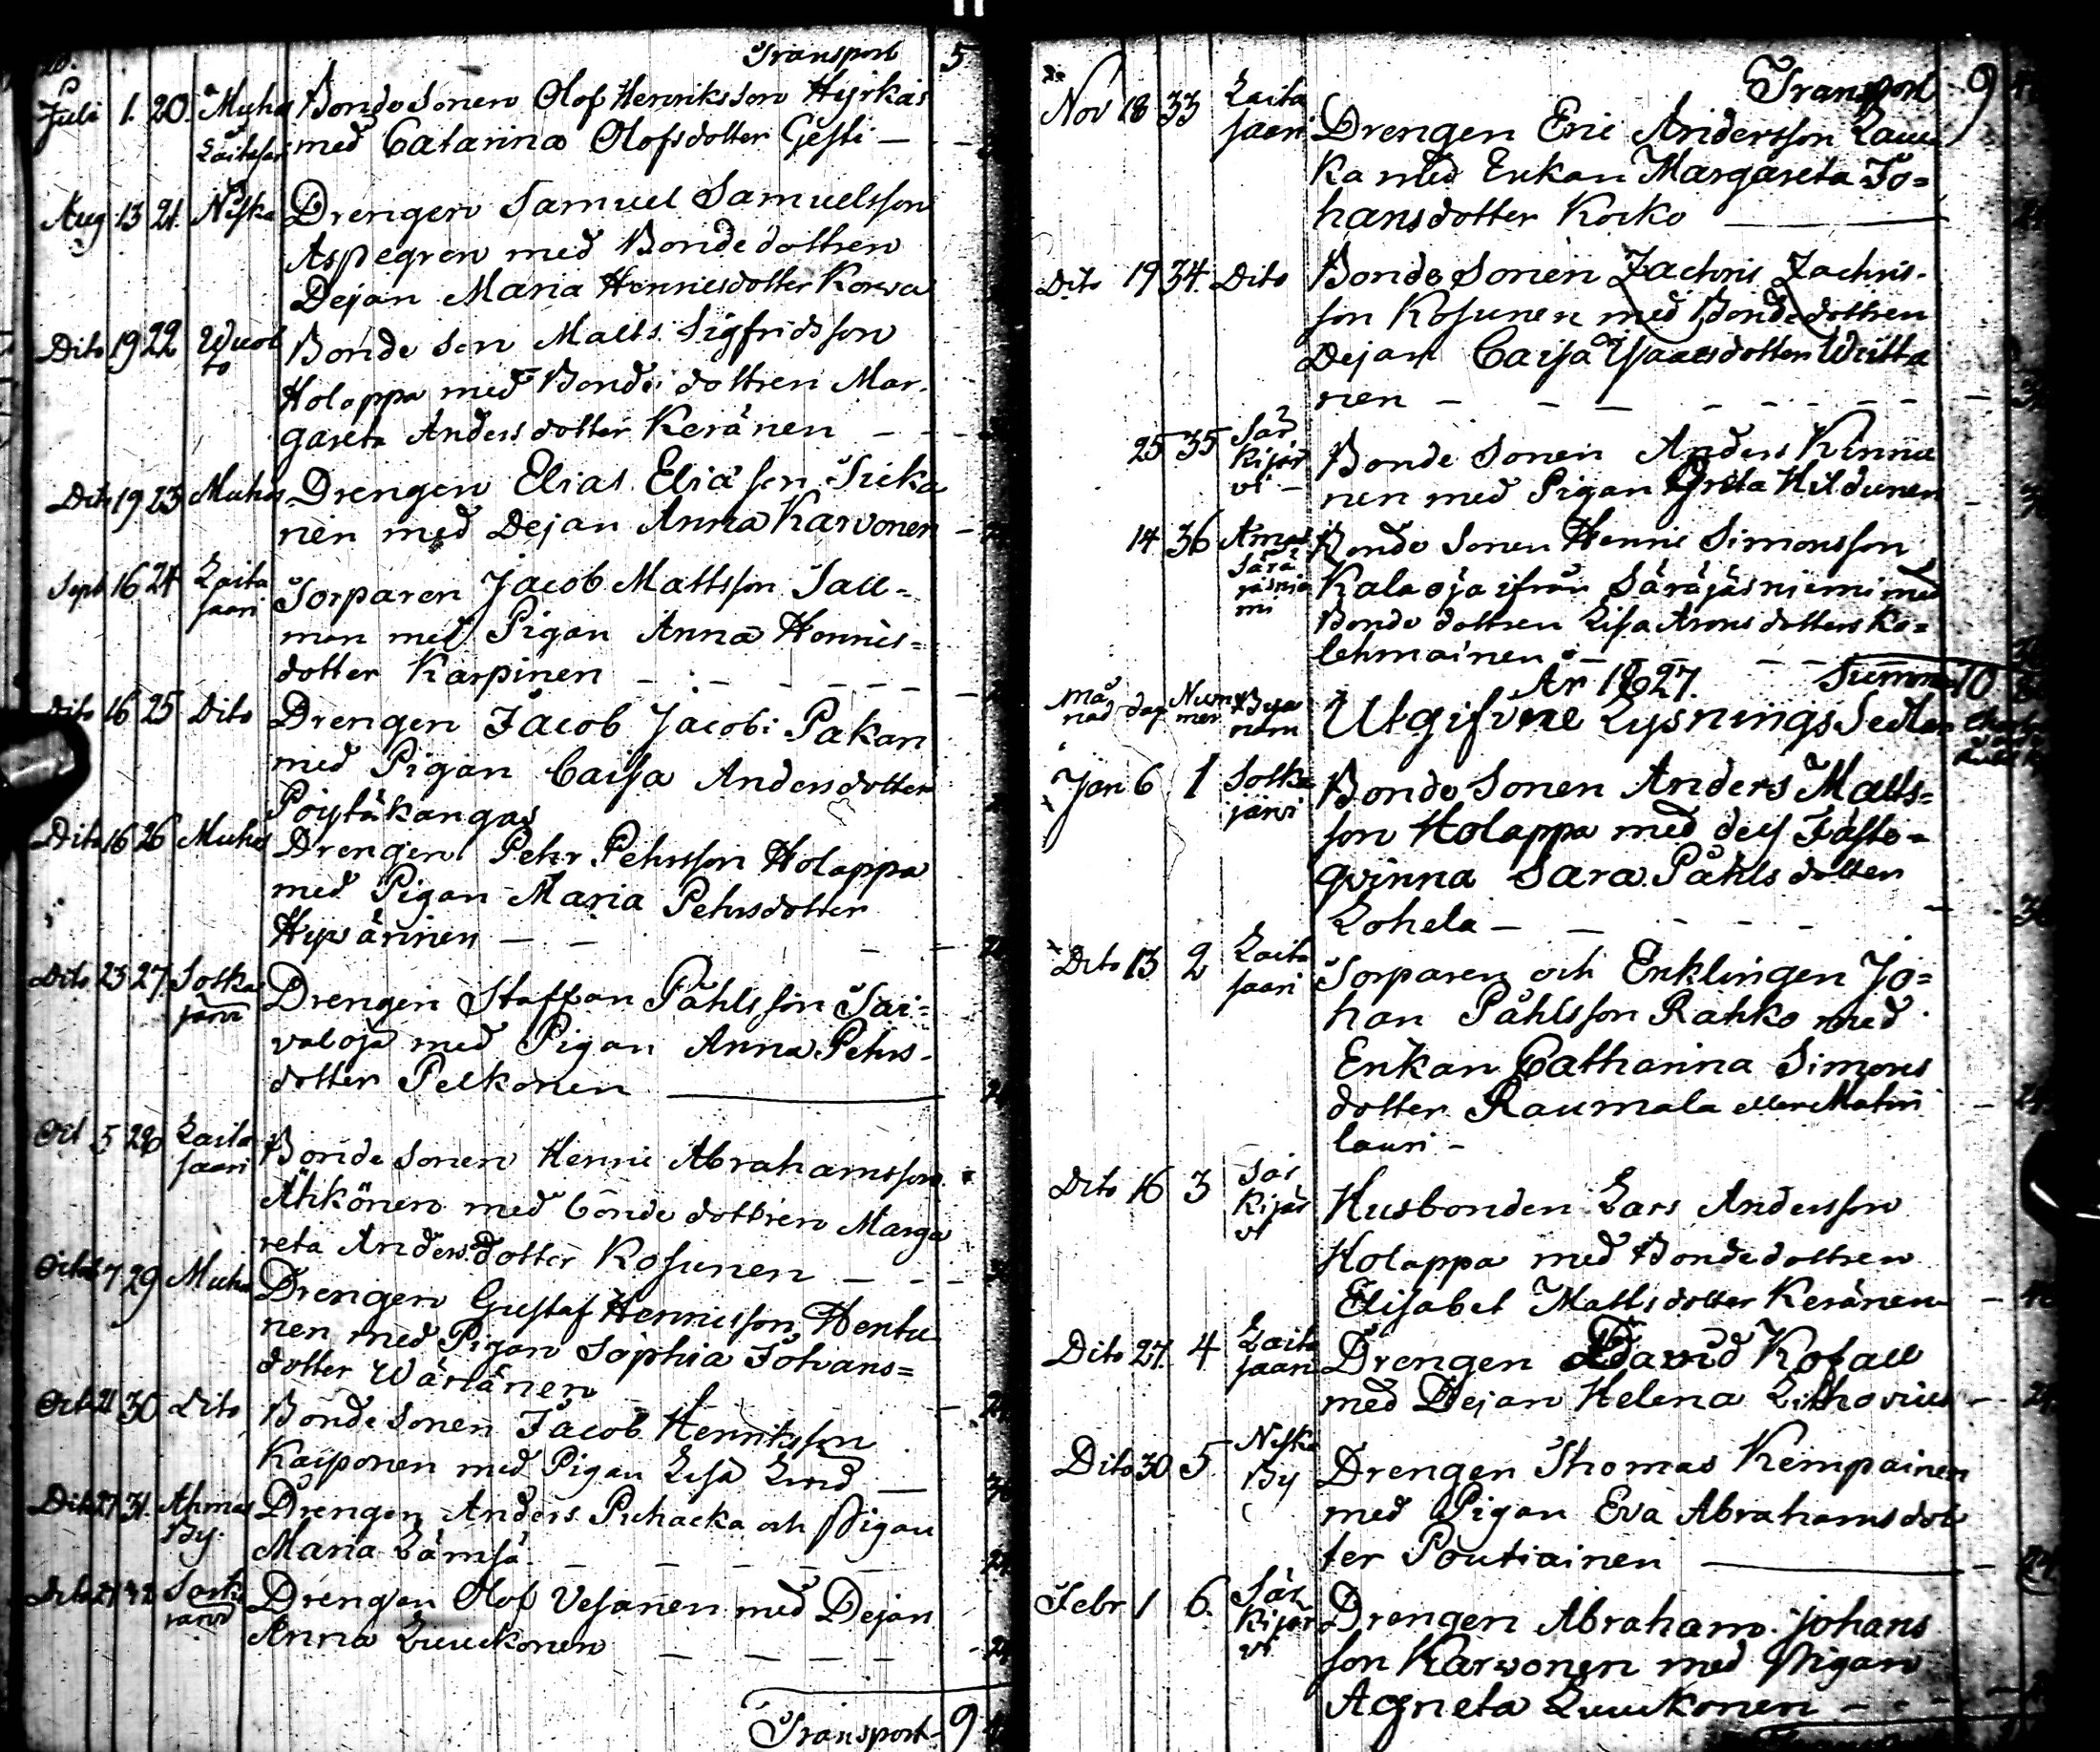 Transport 5
Juli 1. 20. Muhos Bonde Sonen Olof Henriksson Hyrkäs
Laitasari med Catarina Olofsdotter Gesti —
Aug 13 21. Niska Drengen Samuel Samuelsson
Aspegren med Bonde dottren
Dejan Maria Henricsdotter Korva
Dito 19 22 Wuol Bonde Son Matts Sigfridsson
to Holappa med Bonde dottren Mar-
gareta Anders dotter Keränen — —
Dito 19 23 Muhos Drengen Elias Eliæson Ticka
nen med Dejan Anna Karvonen —
Sept 16 24 Laita Torparen Jacob Mattsson Tall=
saari man med Pigan Anna Henrics=
dotter Karpinen — — — — — —
Dito 16 25 Dito Drengen Jacob Jacobs: Pakan
med Pigan Caisa Andersdotter
Pöytäkangas
Dito 16 26 Muhos Drengen Pehr Pehrsson Holappa
med Pigan Maria Pehrsdotter
Hyvärinen — — — —
Dito 23 27. Sotka Drengen Staffan Påhlsson Sai=
järvi valoja med Pigan Anna Pehrs-
dotter Pelkonen —
Oct 5 28 Laita Bonde Sonen Henric Abrahamsson
saari Ätikönen med bonde dottren Marga
reta Anders dotter Kosunen — — —
Octob 7 29 Muhos Drengen Gustaf Henricsson Hentu
nen med Pigan Sophia Johans=
dotter Wärlänen
Oct 21 30 Dito Bonde Sonen Jacob Henriksson
Kaiponen med Pigan Lisa Lind —
Dito 27 31. Ahmas Drengen Anders Puhacka och Pigan
By. Maria Lämsä. — — — —
Dito 27 32 Särki Drengen Olof Vesanen med Dejan
järvi Anna Luuckonen — — — —
Transport 9
Transport 9
Nov 18 33 Laita
saari Drengen Eric Andersson Lauc
ka med Enkan Margareta Jo=
hansdotter Korko —
Dito 19 34. Dito Bonde Sonen Zachris Zachris-
son Kosunen med Bonde dottren
Dejan Caisa Isaacsdotter Wutta
nen — — — — — — —
25 35 Sär Bonde Sonen Anders Kinnu
kijär nen med Pigan Greta Hildunen —
vi —
14 36 Amas Bonde Sonen Henric Simonsson
Särä Kalaoja ifrån Säräjäsniemi med
jäsnie Bonde dottren Lisa Arons dotter Ko=
mi lehmainen — — —
År 1827. Summa 10
Må
nad dag Num Bya Utgifvne Lysnings Sedlar
mer namn
Jan 6 1 Sotka Bonde Sonen Anders Matts=
järvi son Holappa med dess Fäste=
qvinna Sara Påhls dotter
Lohela — — — — —
Dito 13 2 Laita Torparen och Enklingen Jo=
saari han Påhlsson Rahko med
Enkan Catharina Simons
dotter Raumala eller Matin
lauri —
Dito 16 3 Sär
kijär Husbonden Lars Andersson
vi Holappa med Bonde dottren
Elisabet Matts dotter Keränen —
Dito 27. 4 Laita Drengen David Kofall
saari med Dejan Helena Lithovius —
Dito 30 5 Niska Drengen Thomas Kempainen
By med Pigan Eva Abrahamsdot
ter Poutiainen —
Febr 1 6. Sär Drengen Abraham Johans
kijär son Karvonen med Pigan
vi Agneta Luuckonen —